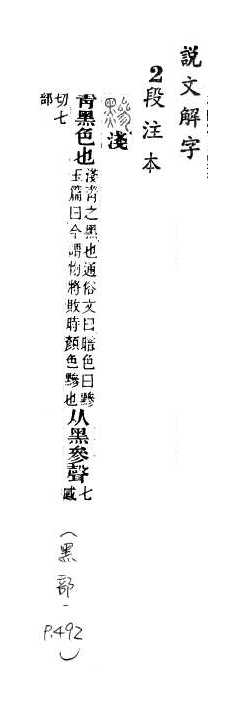 説文解字
2段注本
黲淺
青黑色也
淺青之黑也通俗文曰暗色曰黲
玉篇曰今謂物將敗時顏色黲也
从黑參聲
七
感
切七
部
(黑部-P.492)